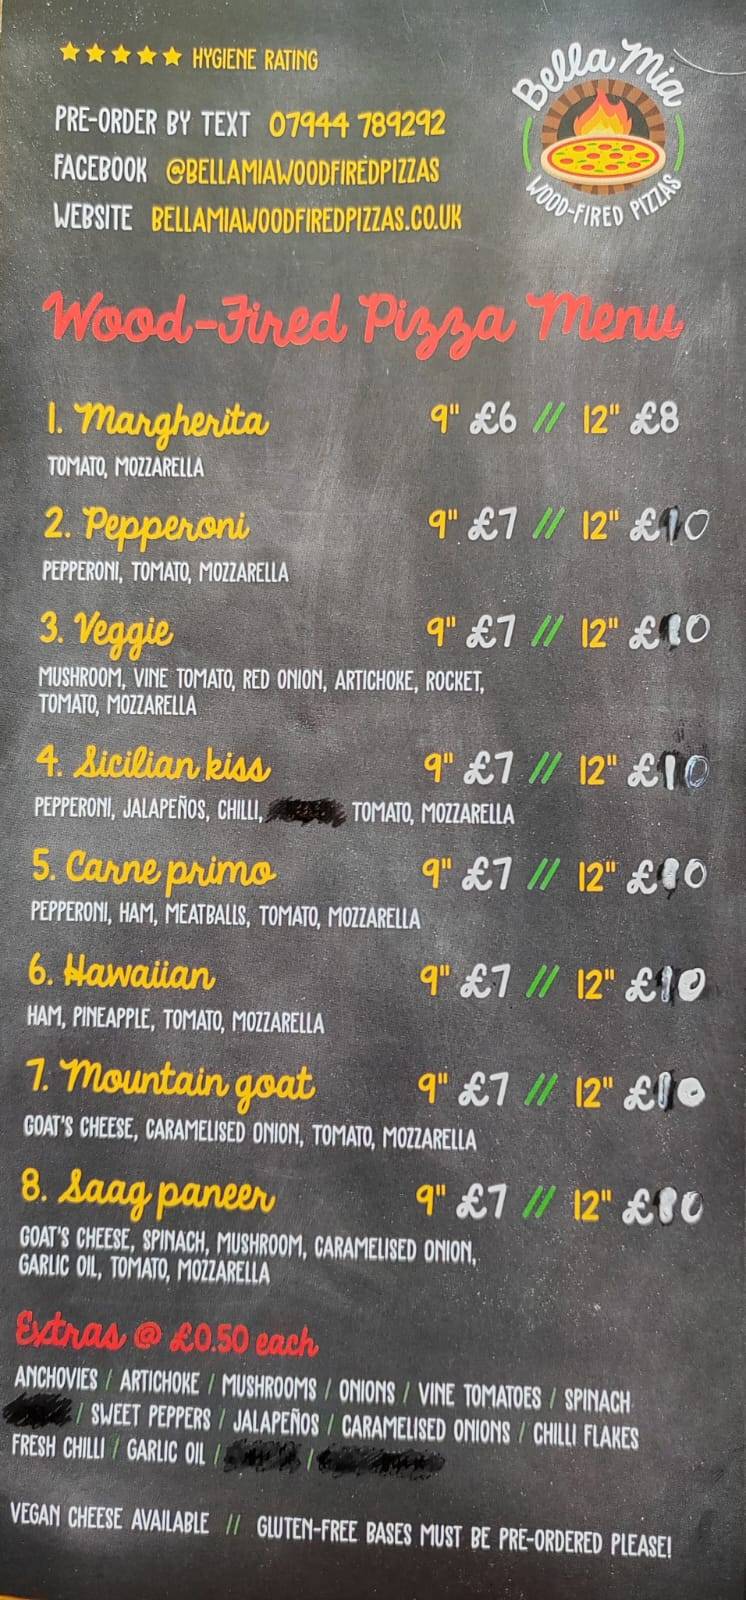 ★★★★★ HYGIENE RATING
Bella Mia
WOOD-FIRED PIZZAS
PRE-ORDER BY TEXT 07944 789292
FACEBOOK @BELLAMIAWOODFIREDPIZZAS
WEBSITE BELLAMIAWOODFIREDPIZZAS.CO.UK
Wood-Fired Pizza Menu
1. Margherita 9" £6 // 12" £8
TOMATO, MOZZARELLA
2. Pepperoni 9" £7 // 12" £10
PEPPERONI, TOMATO, MOZZARELLA
3. Veggie 9" £7 // 12" £10
MUSHROOM, VINE TOMATO, RED ONION, ARTICHOKE, ROCKET,
TOMATO, MOZZARELLA
4. Sicilian kiss 9" £7 // 12" £10
PEPPERONI, JALAPEÑOS, CHILLI, TOMATO, MOZZARELLA
5. Carne primo 9" £7 // 12" £10
PEPPERONI, HAM, MEATBALLS, TOMATO, MOZZARELLA
6. Hawaiian 9" £7 // 12" £10
HAM, PINEAPPLE, TOMATO, MOZZARELLA
7. Mountain goat 9" £7 // 12" £10
GOAT'S CHEESE, CARAMELISED ONION, TOMATO, MOZZARELLA
8. Saag paneer 9" £7 // 12" £10
GOAT'S CHEESE, SPINACH, MUSHROOM, CARAMELISED ONION,
GARLIC OIL, TOMATO, MOZZARELLA
Extras @ £0.50 each
ANCHOVIES / ARTICHOKE / MUSHROOMS / ONIONS / VINE TOMATOES / SPINACH
/ SWEET PEPPERS / JALAPEÑOS / CARAMELISED ONIONS / CHILLI FLAKES
FRESH CHILLI / GARLIC OIL / /
VEGAN CHEESE AVAILABLE // GLUTEN-FREE BASES MUST BE PRE-ORDERED PLEASE!